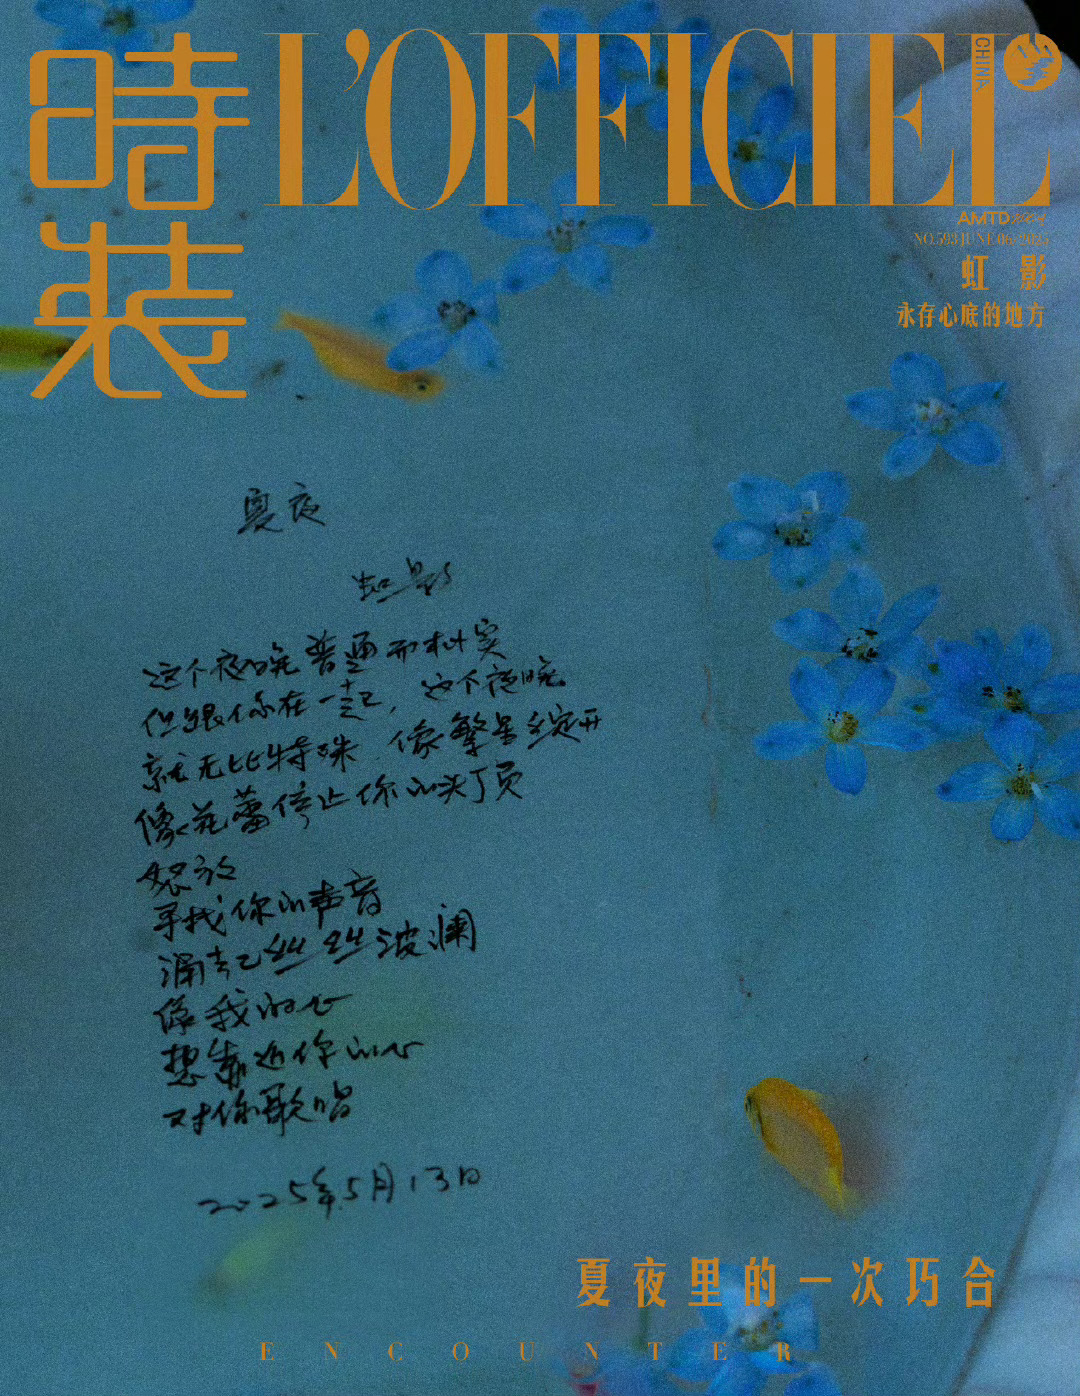 時装
L'OFFICIEL
CHINA
AMTD
NO.593 JUNE.06/2025
虹影
永存心底的地方
夏夜
虹影
这个夜晚普通而朴实
但跟你在一起，这个夜晚
就无比特殊，像繁星绽开
像花蕾停止你的头顶
怒放
寻找你的声音
涌起丝丝波澜
像我的心
想靠近你的心
对你歌唱
2025年5月13日
夏夜里的一次巧合
ENCOUNTER